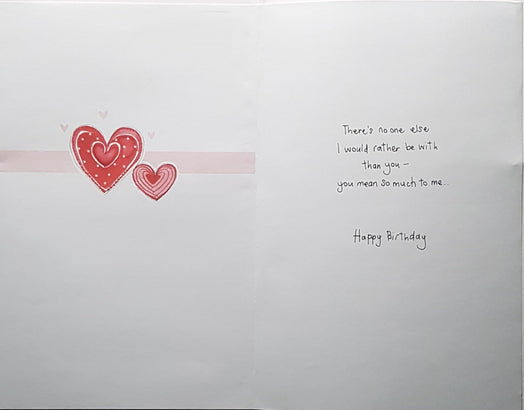 There's no one else
I would rather be with
than you –
you mean so much to me..
Happy Birthday